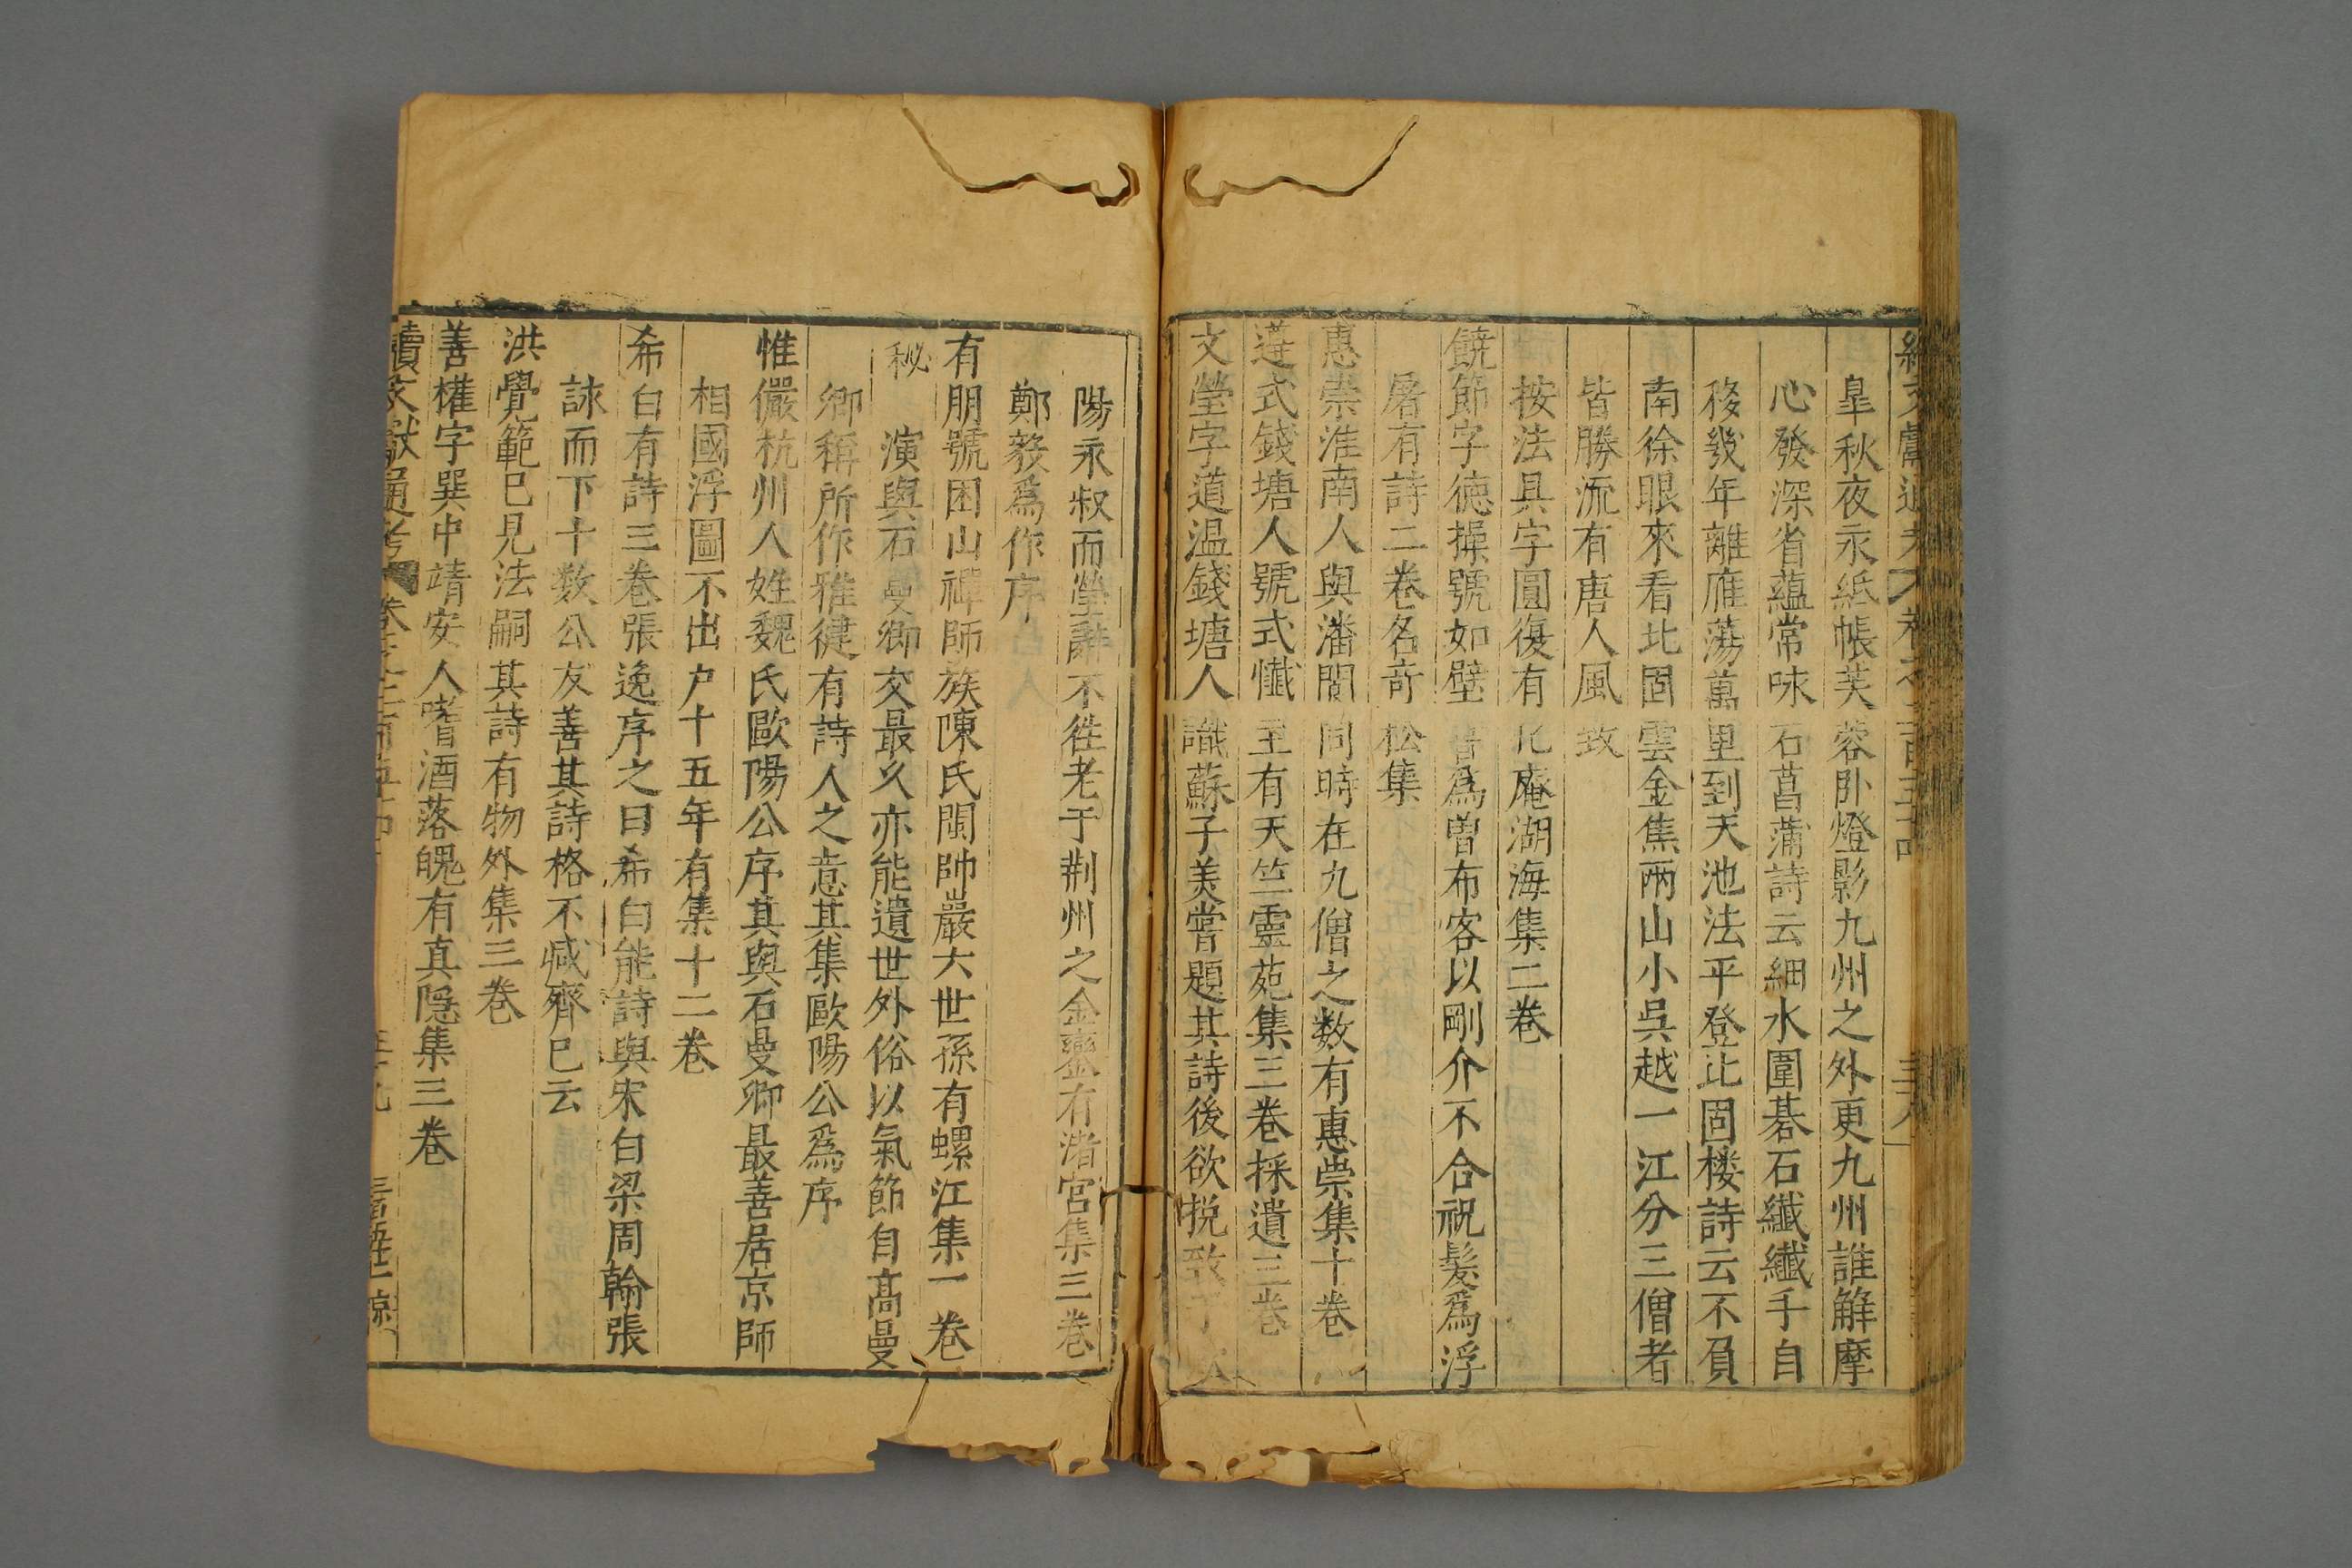 皐秋夜永紙帳芙蓉卧燈影九州之外更九州誰解摩
心發深省蘊常味石菖蒲詩云細水圍碁石纖纖手自
移幾年離雁蕩萬里到天池法平登北固楼詩云不負
南徐眼來看北固雲金焦兩山小吳越一江分三僧者
皆勝流有唐人風致
按法具字圓復有化庵湖海集二卷
饒節字德操號如壁曽為曽布客以剛介不合祝髪為浮
屠有詩二卷名竒松集
惠崇淮南人與潘閬同時在九僧之数有惠崇集十卷
遵式錢塘人號式懺主有天竺靈苑集三卷採遺三卷
文瑩字道温錢塘人識蘇子美嘗題其詩後欲挽致于
陽永叔而瑩辭不徃老于荆州之金鑾有渚宮集三卷
鄭毅為作序
有朋號困山禪師族陳氏閩帥巖六世孫有螺江集一卷
秘演與石曼卿交最久亦能遺世外俗以氣節自高曼
卿稱所作雅健有詩人之意其集歐陽公為序
惟儼杭州人姓魏氏歐陽公序其與石曼卿最善居京師
相國浮圖不出户十五年有集十二卷
希白有詩三卷張逸序之曰希白能詩與宋白梁周翰張
詠而下十数公友善其詩格不減齊巳云
洪覺範巳見法嗣其詩有物外集三卷
善權字巽中靖安人嗜酒落魄有真隱集三卷
續文獻通考